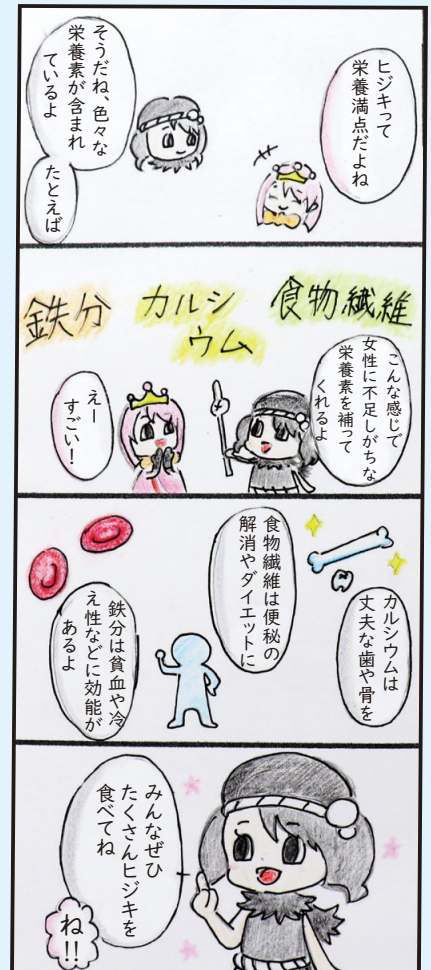 ヒジキって
栄養満点だよね
そうだね、色々な
栄養素が含まれ
ているよ
たとえば
食物繊維
カルシ
ウム
鉄分
こんな感じで
女性に不足しがちな
栄養素を補って
くれるよ
えー
すごい!
カルシウムは
丈夫な歯や骨を
食物繊維は便秘の
解消やダイエットに
鉄分は貧血や冷
え性などに効能が
あるよ
みんなぜひ
たくさんヒジキを
食べてね
ね!!